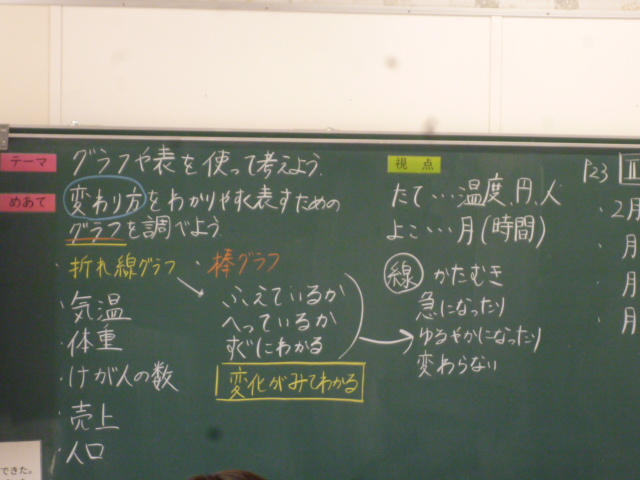 テーマ
グラフや表を使って考えよう.
めあて
変わり方をわかりやすく表すための
グラフを調べよう.
・折れ線グラフ ・棒グラフ
・気温
・体重
・けが人の数
・売上
・人口
ふえているか
へっているか
すぐにわかる
変化がみてわかる
視点
たて…温度、円、人
よこ…月(時間)
線 かたむき
急になったり
ゆるやかになったり
変わらない
P23
・2月
・月
・月
・月
できた。